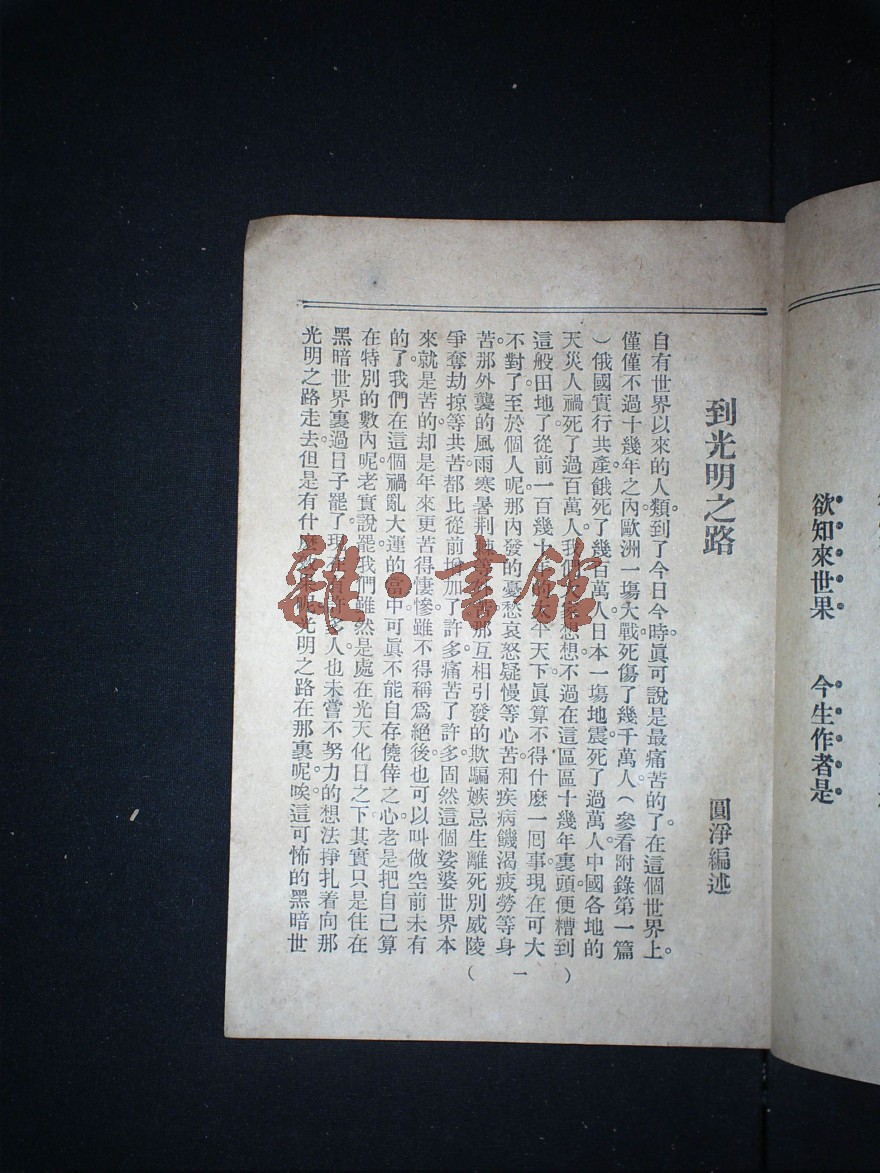 欲知來世果　今生作者是
到光明之路
圓淨編述
自有世界以來的人類到了今日今時眞可說是最痛苦的了在這個世界上。
僅僅不過十幾年之內歐洲一塲大戰死傷了幾千萬人（參看附錄第一篇
）俄國實行共產餓死了幾百萬人日本一塲地震死了過萬人中國各地的
天災人禍死了過百萬人我們想想不過在這區區十幾年裏頭便糟到
這般田地了從前一百幾十年的太平天下眞算不得什麼一囘事現在可大
不對了至於個人呢那內發的憂愁哀怒疑慢等心苦和疾病饑渴疲勞等身
苦那外襲的風雨寒暑荆等苦那互相引發的欺騙嫉忌生離死別威陵
爭奪劫掠等共苦都比從前增加了許多痛苦了許多固然這個娑婆世界本
來就是苦的却是年來更苦得悽慘雖不得稱爲絕後也可以叫做空前未有
的了我們在這個禍亂大運的當中可眞不能自存僥倖之心老是把自己算
在特別的數內呢老實說罷我們雖然是處在光天化日之下其實只是住在
黑暗世界裏過日子罷了現在有許多人也未嘗不努力的想法掙扎着向那
光明之路走去但是有什麼呢光明之路在那裏呢唉這可怖的黑暗世
（一）
雜·書館